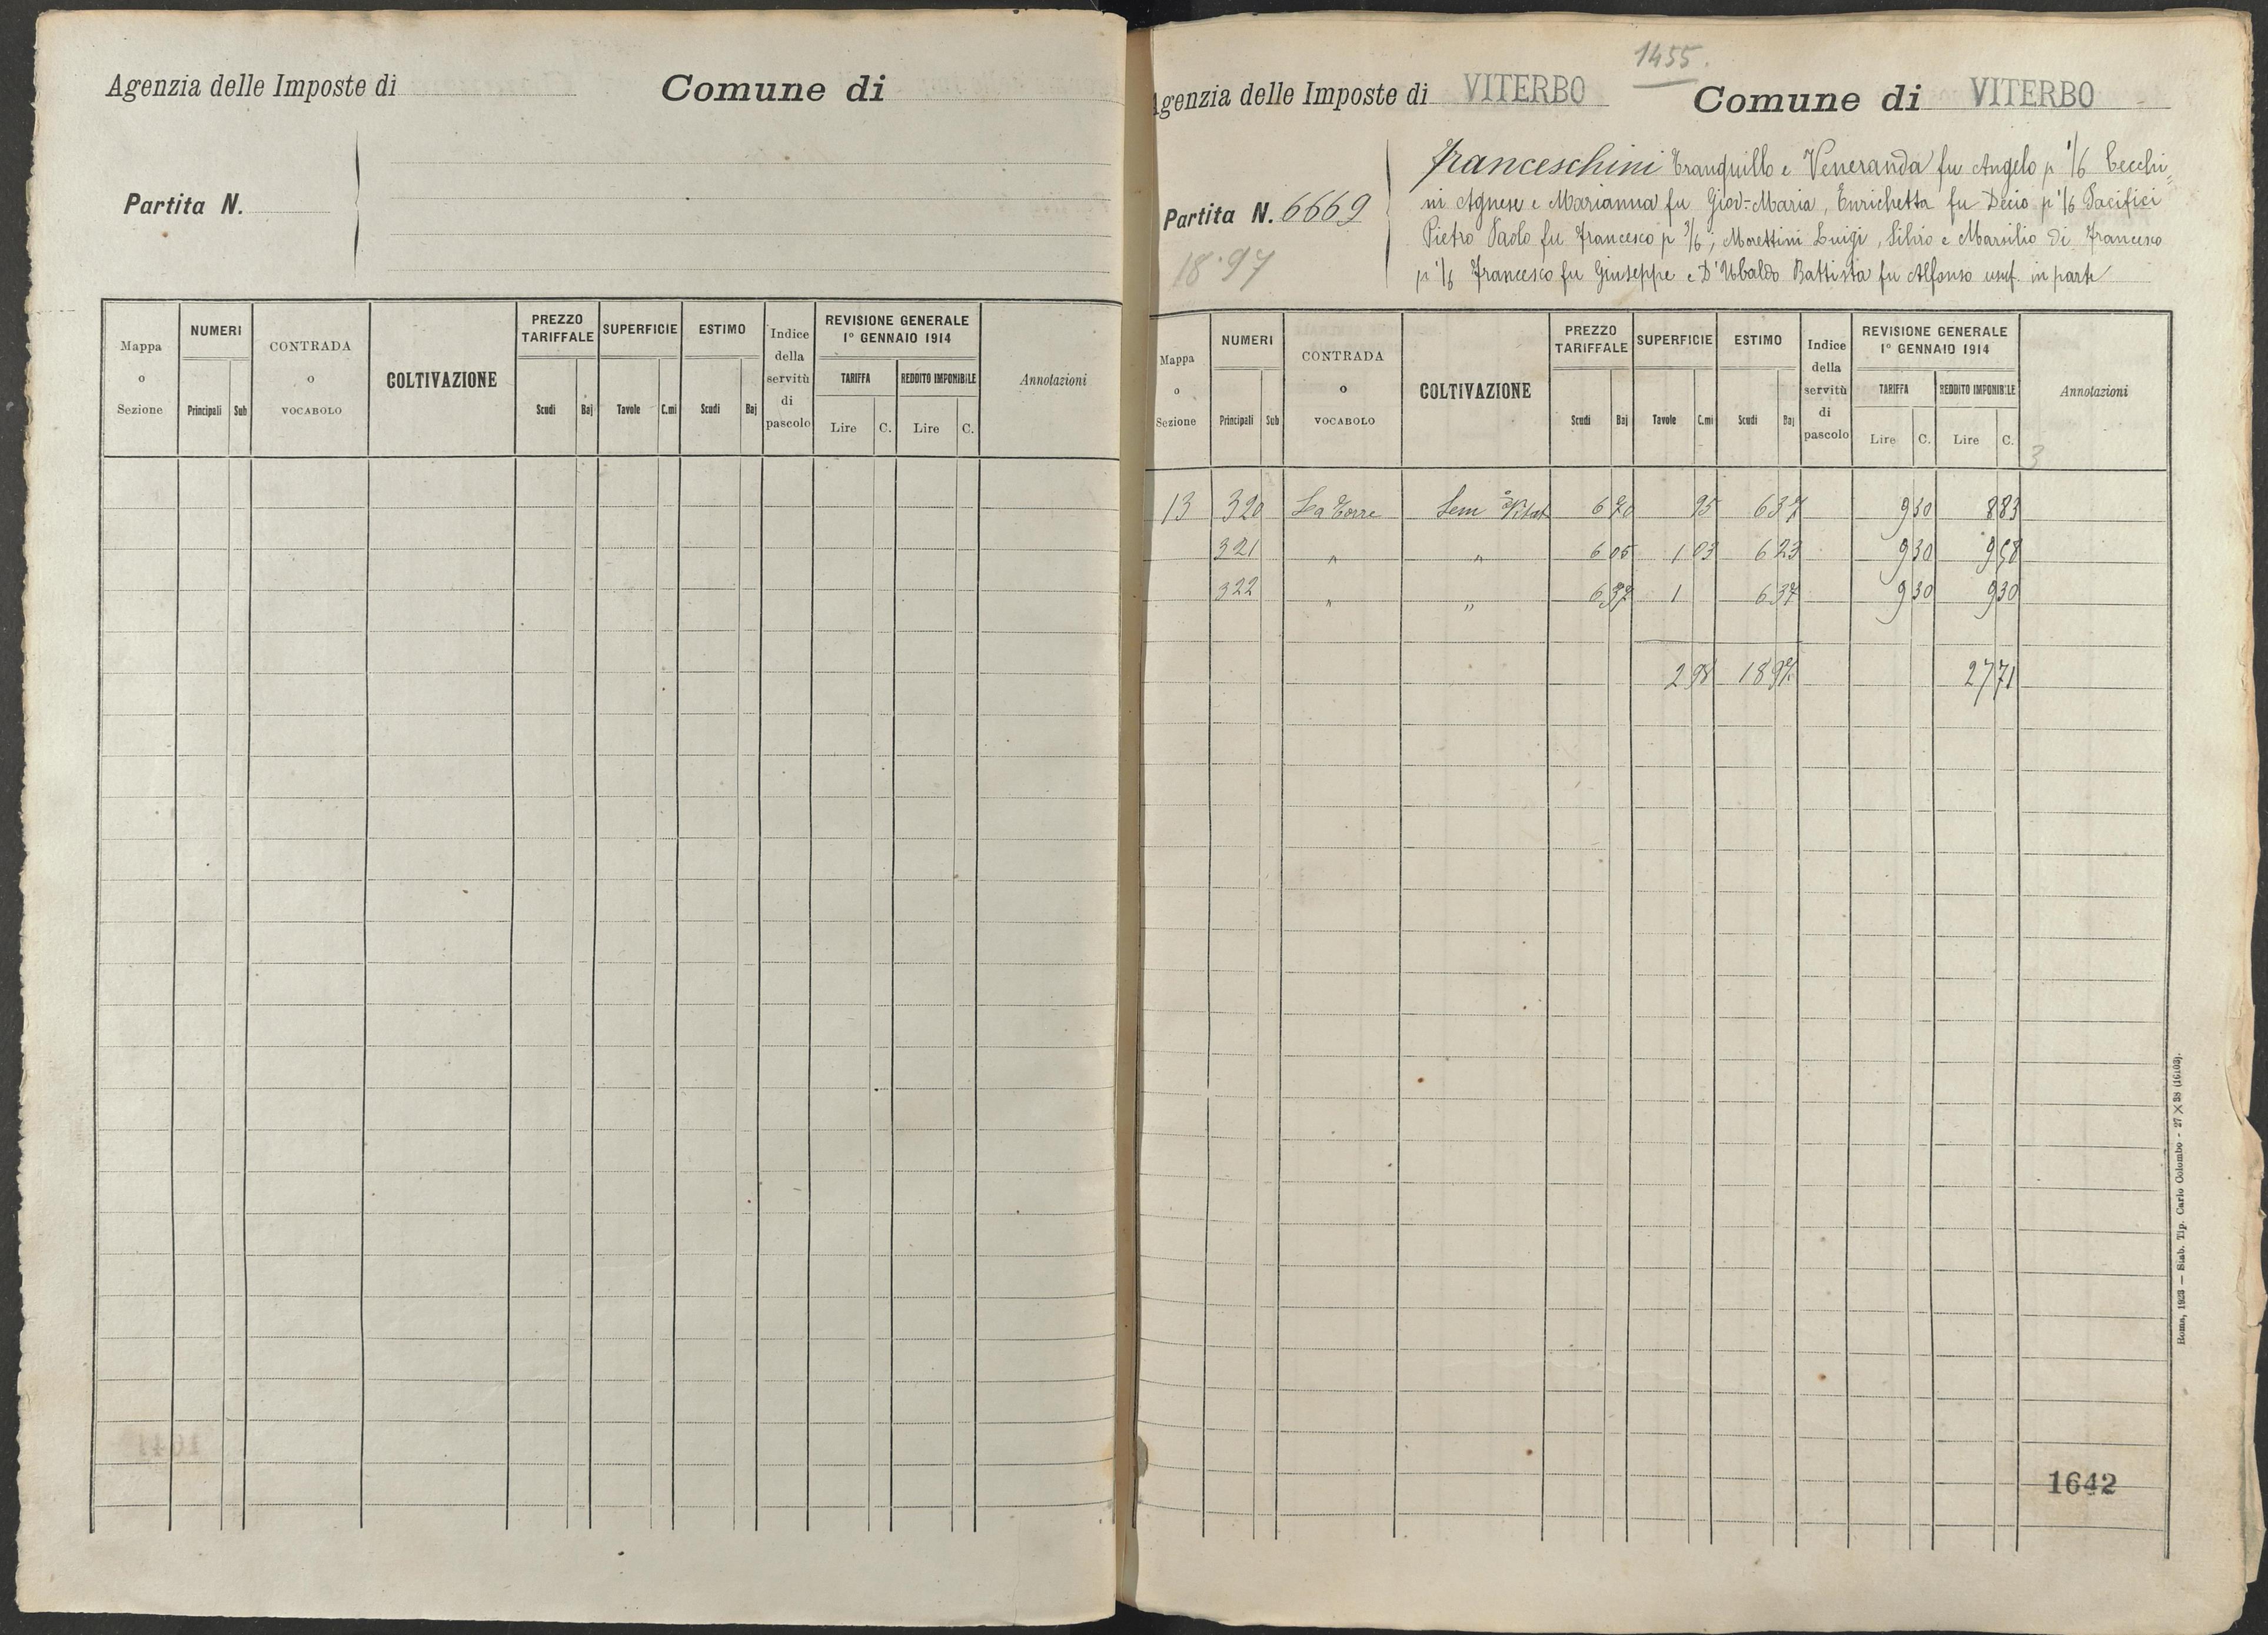 Agenzia delle Imposte di Comune di
Partita N.
Mappa o Sezione NUMERI Principali Sub CONTRADA o VOCABOLO COLTIVAZIONE PREZZO TARIFFALE Scudi Baj SUPERFICIE Tavole C.mi ESTIMO Scudi Baj Indice della servitù di pascolo REVISIONE GENERALE 1° GENNAIO 1914 TARIFFA Lire C. REDDITO IMPONIBILE Lire C. Annotazioni
1455.
Agenzia delle Imposte di VITERBO Comune di VITERBO
Franceschini Tranquillo e Veneranda fu Angelo p 1/6 Cecchi=
ni Agnese e Marianna fu Giov-Maria, Enrichetta fu Decio p 1/6 Pacifici
Partita N. 6669
Pietro Paolo fu Francesco p 3/6; Morettini Luigi, Silvio e Marsilio di Francesco
18.97
p 1/6 Francesco fu Giuseppe e D'Ubaldo Battista fu Alfonso usuf. in parte
Mappa o Sezione NUMERI Principali Sub CONTRADA o VOCABOLO COLTIVAZIONE PREZZO TARIFFALE Scudi Baj SUPERFICIE Tavole C.mi ESTIMO Scudi Baj Indice della servitù di pascolo REVISIONE GENERALE 1° GENNAIO 1914 TARIFFA Lire C. REDDITO IMPONIBILE Lire C. Annotazioni
3
13 320 La Torre Sem 6 70 95 6 37 9 30 8 83
321 " " 6 05 1 03 6 23 9 30 9 58
322 " " 6 37 1 6 37 9 30 9 30
2 98 18 97 27 71
Roma, 1923 — Stab. Tip. Carlo Colombo - 27 X 38 (16103).
1642